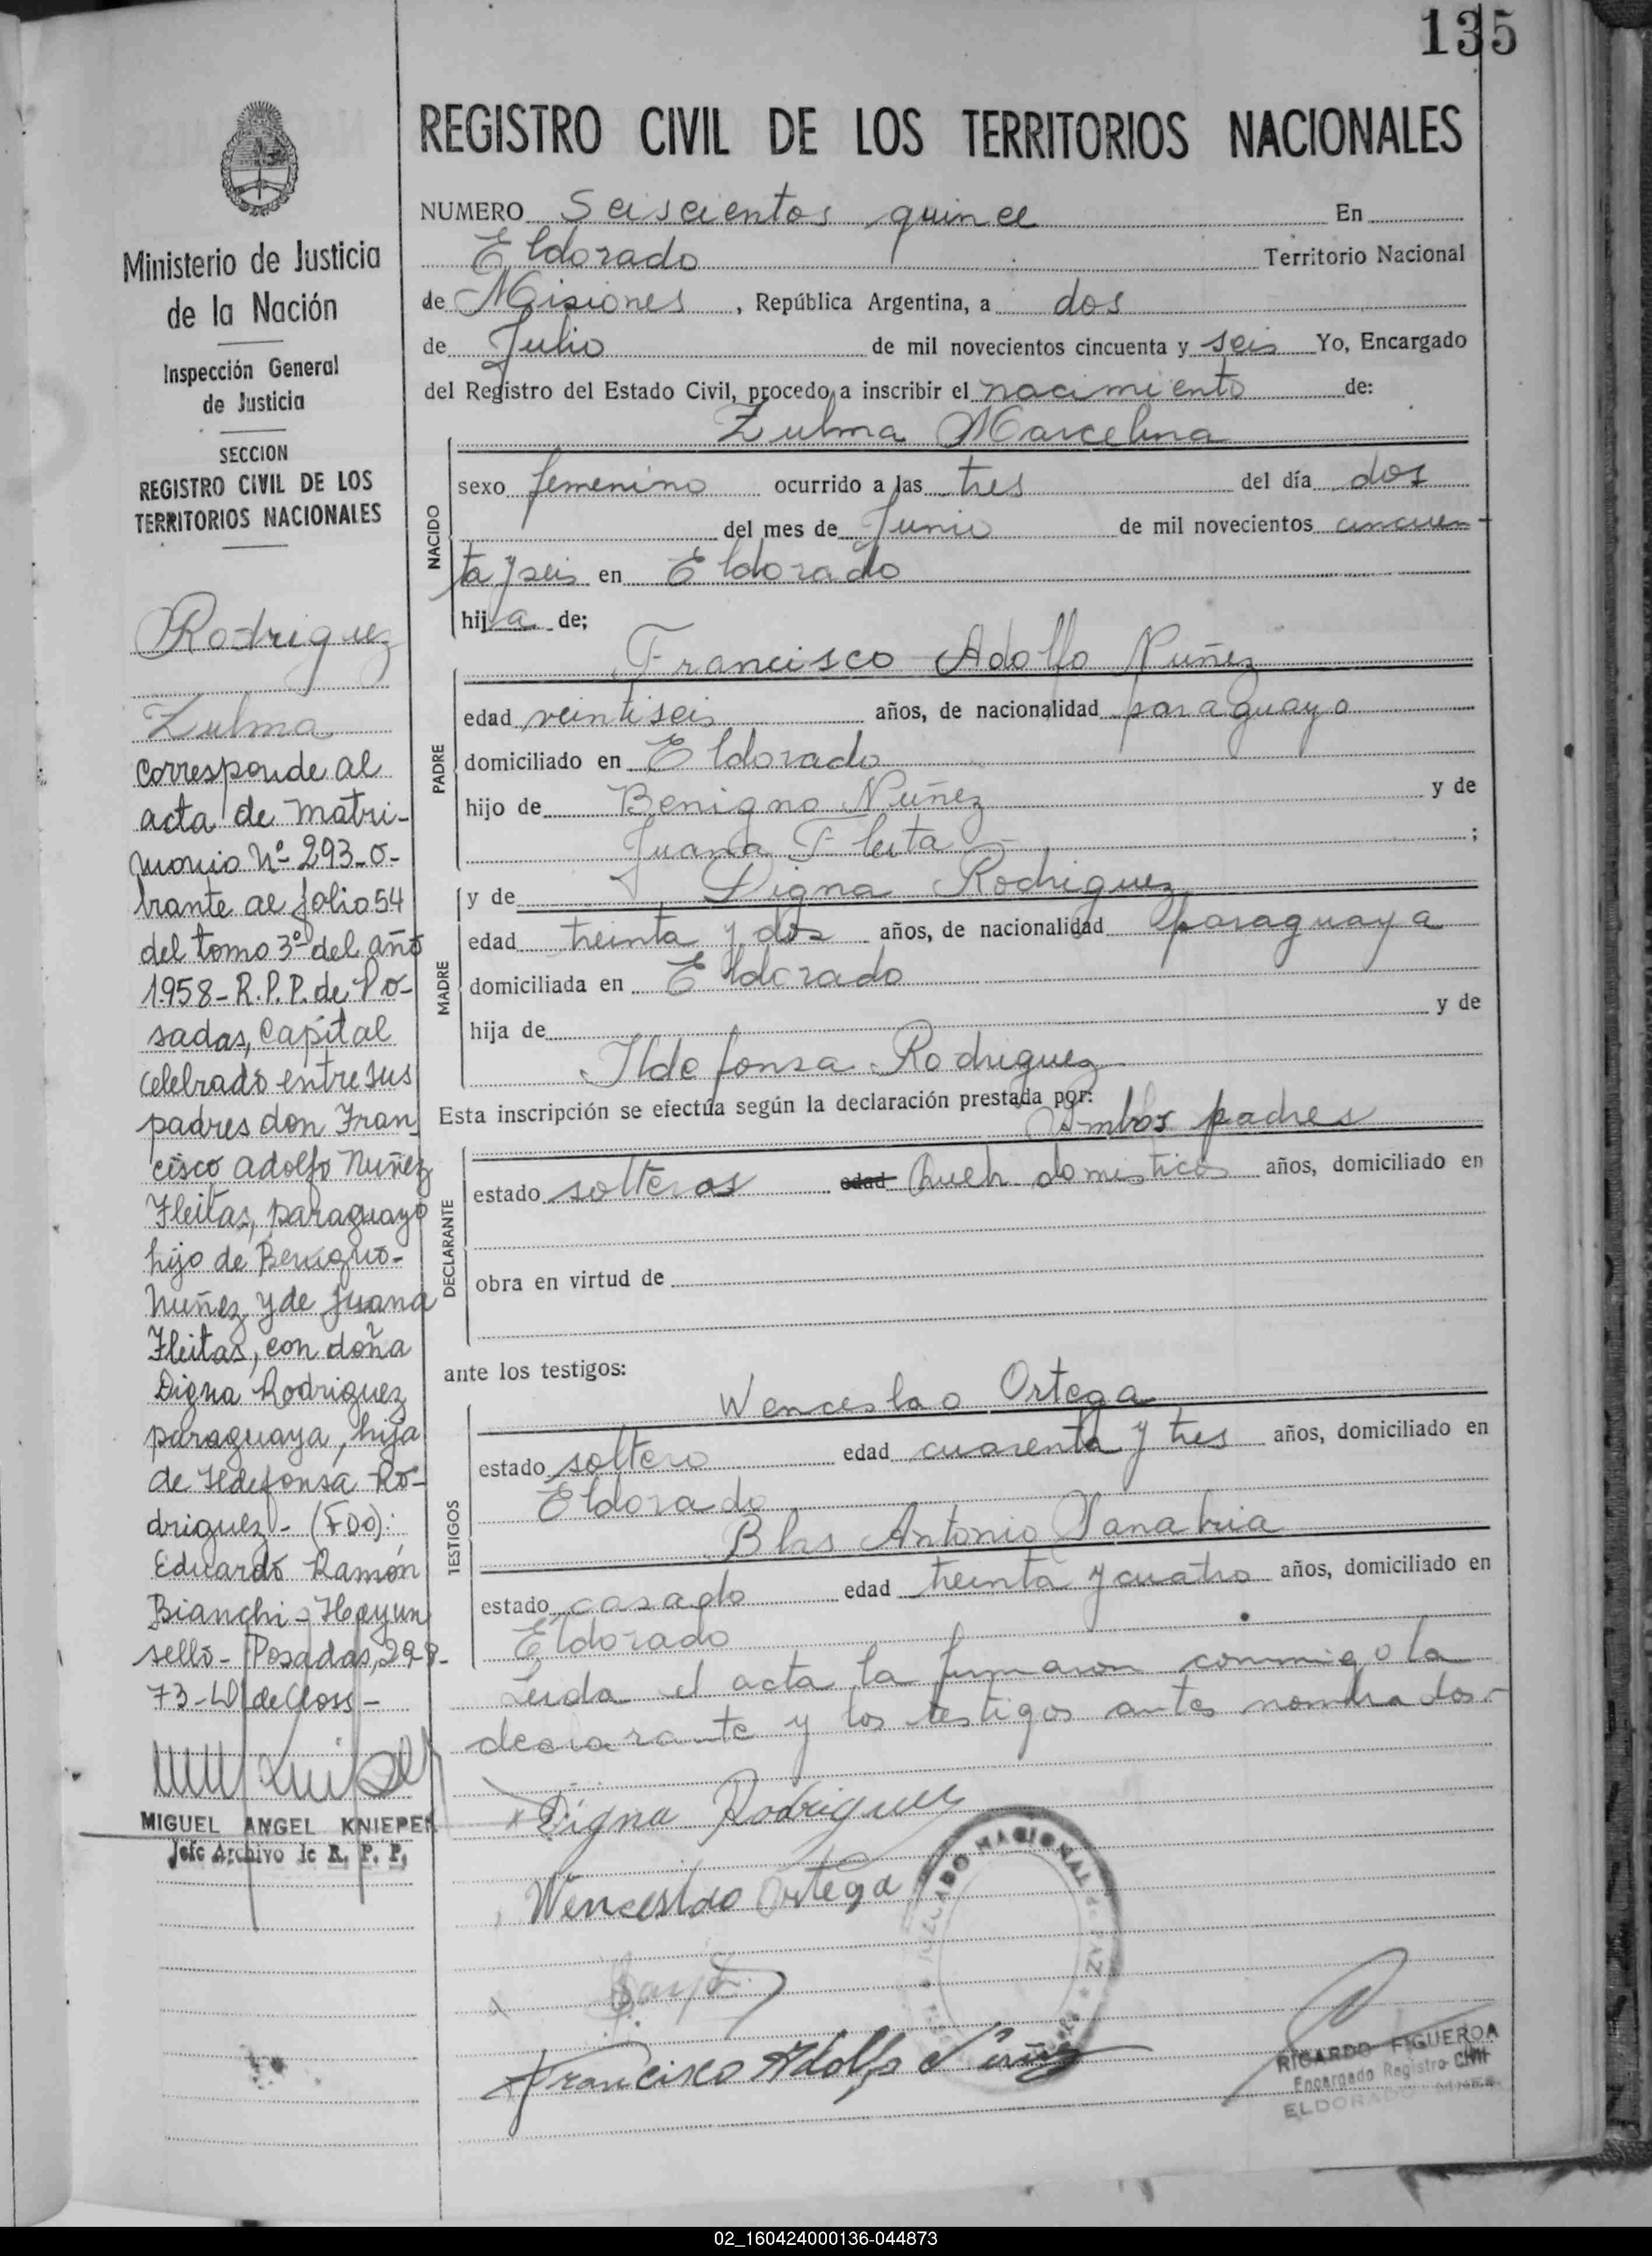 135
REGISTRO CIVIL DE LOS TERRITORIOS NACIONALES
Ministerio de Justicia
de la Nación
Inspección General
de Justicia
SECCION
REGISTRO CIVIL DE LOS
TERRITORIOS NACIONALES
Rodriguez
Zulma
Corresponde al
acta de matri-
monio Nº 293-o-
brante al folio 54
del tomo 3º del año
1958- R.P.P. de Po-
sadas, Capital
celebrado entre sus
padres don Fran
cisco Adolfo Nuñez
Fleitas, paraguayo
hijo de Benigno-
Nuñez y de Juana
Fleitas, con doña
Digna Rodriguez
paraguaya, hija
de Ildefonsa Ro-
driguez - (FDO):
Eduardo Ramón
Bianchi - Hay un
sello - Posadas, 29-8-
73-
MIGUEL ANGEL KNIEPER
Jefe Archivo R. P. P.
NUMERO Seiscientos quince En
Eldorado Territorio Nacional
de Misiones, República Argentina, a dos
de Julio de mil novecientos cincuenta y seis Yo, Encargado
del Registro del Estado Civil, procedo a inscribir el nacimiento de:
Zulma Marcelina
NACIDO
sexo femenino ocurrido a las tres del día dos
del mes de Junio de mil novecientos cincuen-
ta y seis en Eldorado
hija de;
Francisco Adolfo Nuñez
PADRE
edad veintiseis años, de nacionalidad paraguayo
domiciliado en Eldorado
hijo de Benigno Nuñez y de
Juana Fleita ;
y de Digna Rodriguez
MADRE
edad treinta y dos años, de nacionalidad paraguaya
domiciliada en Eldorado
hija de y de
Ildefonsa Rodriguez
Esta inscripción se efectúa según la declaración prestada por:
Ambos padres
DECLARANTE
estado solteros edad domisticos años, domiciliado en
obra en virtud de
ante los testigos:
Wenceslao Ortega
TESTIGOS
estado soltero edad cuarenta y tres años, domiciliado en
Eldorado
Blas Antonio Sanabria
estado casado edad treinta y cuatro años, domiciliado en
Eldorado
Leida el acta la firmaron conmigo la
declarante y los testigos antes nombrados.-
Digna Rodriguez
Wenceslao Ortega
Francisco Adolfo Nuñez
RICARDO FIGUEROA
Encargado Registro Civil
ELDORADO
02_160424000136-044873